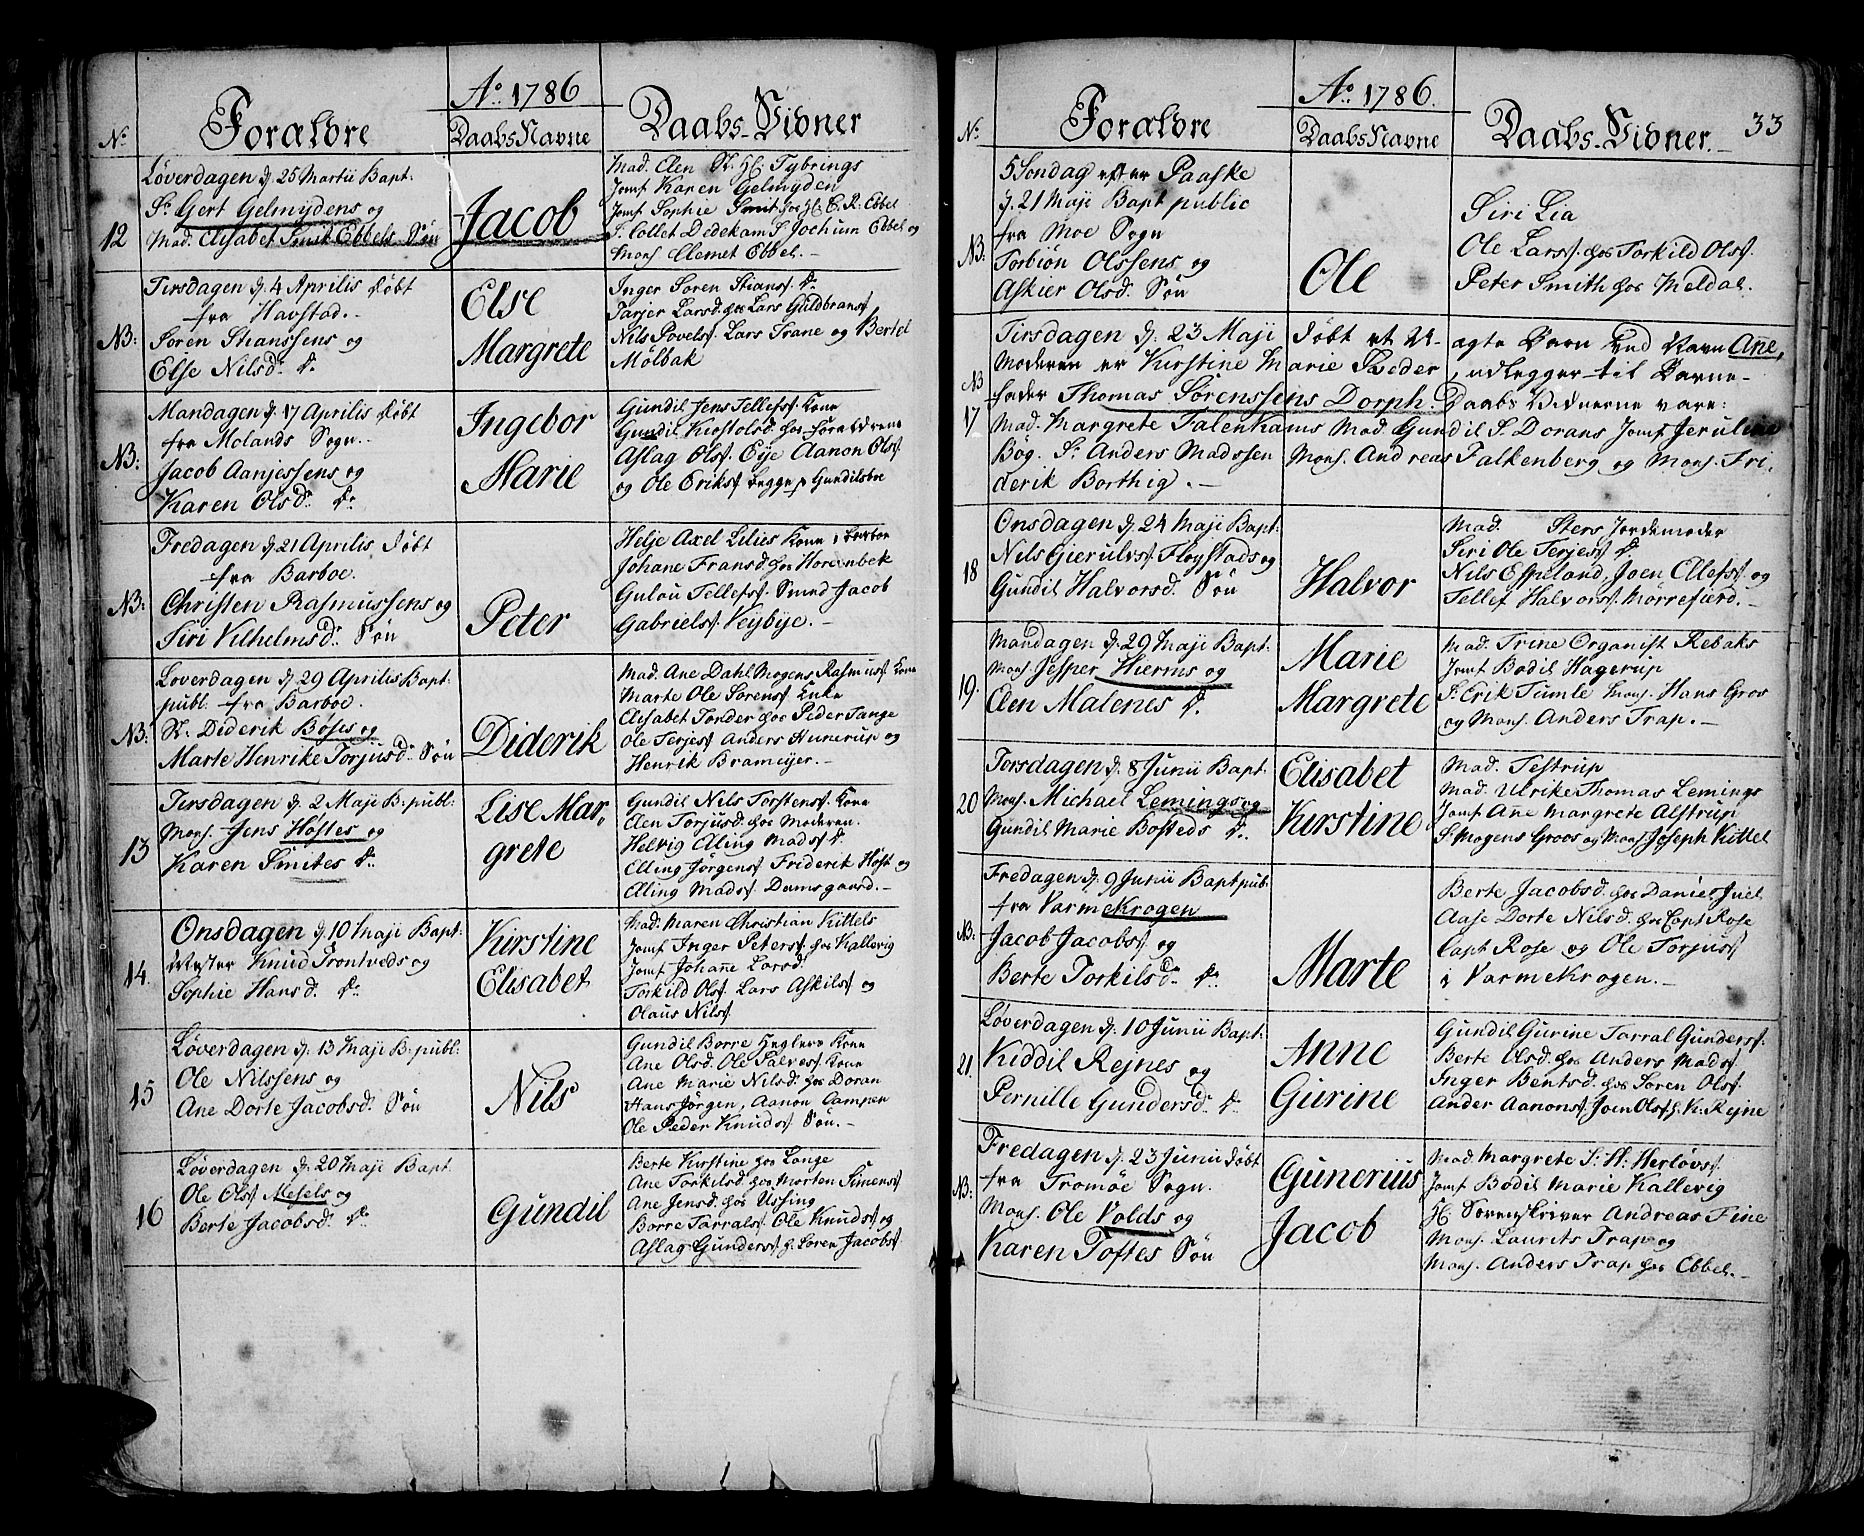 Ao. 1786
No. Forældre DaabsNavne Daabs-Vidner
12
Løverdagen d. 25 Martii Bapt:
Sr. Gert Gelmÿdens og
Mad. Elisabet Smit Ebbels Søn
Jacob
Mad. Elen Sr. H. Tybrings
Jomf. Karen Gelmÿden
Jomf. Sophie Smit hos H. C. R. Ebbel
S. Collet Dedekam S. Jochum Ebbel og
Mons. Clemet Ebbel.-
NB:
Tirsdagen d. 4 Aprilis døbt
fra Havstad.-
Søren Stianssens og
Else Nilsd. Dr.
Else
Margrete
Inger Søren Stians. Dr.
Tarjer Larsd. hos Lars Guldbrans.
Nils Povels. Lars Trane og Bertel
Mølbak
NB:
Mandagen d. 17 Aprilis døbt
fra Molands Sogn.
Jacob Aanjessens og
Karen Olsd. Dr.
Ingebor
Marie
Gundil Jens Tellefs. Kone
Gundil Kirstolsd. hos Forældrene
Aslag Ols. Eije Aanon Ols.
og Ole Eriks. begge p Gundilsboe
NB:
Fredagen d. 21 Aprilis, døbt
fra Barboe.
Christen Rasmussens og
Siri Vilhelmsd. Søn
Peter
Helje Axel Lilies Kone i Barboe
Johane Fransd. hos Horenbek
Gulou Tellefs. Smed Jacob
Gabriels. Vejbye.-
NB:
Løverdagen d. 29 Aprilis Bapt:
publ. fra Barboe.
Sr. Diderik Bøses og
Marte Henrike Torjusd. Søn
Diderik
Mad. Ane Dahl Mogens Rasmus. Kone
Marte Ole Sørens. Enke
Elisabet Tønder hos Peder Tange
Ole Terjes. Anders Hunerup og
Henrik Brameijer.-
13
Tirsdagen d. 2 Maji B: publ:
Mons. Jens Høstes og
Karen Smites Dr.
Lise Mar-
grete
Gundil Nils Torstens. Kone
Elen Torjusd. hos Moderen.
Helvig Eling Mads. Dr.
Elling Jørgens. Friderik Høst og
Eling Mads. Damsgaard.-
14
Onsdagen d. 10 Maji Bapt:
Mester Knud Trontveds og
Sophie Hansd. Dr.
Kirstine
Elisabet
Mad. Maren Christian Kittels
Jomf. Inger Peters. hos Kallevig
Jomf. Johane Larsd.
Torkild Ols. Lars Askils. og
Olaus Nils.
15
Løverdagen d. 13 Maji B: publ:
Ole Nilssens og
Ane Dorte Jacobsd. Søn
Nils
Gundil Børre Heglers Kone
Ane Olsd. Ole Salves. Kone
Ane Marie Nilsd. hos Doran
Hans Jørgen, Aanon Campen
Ole Peder Knuds. Søn.-
16
Løverdagen d. 20 Maji Bapt.
Ole Ols. Mesels og
Berte Jacobsd. Dr.
Gundil
Berte Kirstine hos Lange
Ane Torkilsd. hos Morten Simens.
Ane Jensd. hos Ussing
Børre Tarrals. Ole Knuds. og
Aslag Gunders. h. Søren Jacobs.
Ao. 1786.
No. Forældre DaabsNavne Daabs-Vidner.- 33
NB:
5 Søndag efter Paaske
d. 21 Maji Bapt public
fra Moe Sogn
Torbiøn Olssens og
Askier Olsd. Søn
Ole
Siri Lia
Ole Lars. hos Torkild Ols.
Peter Smith hos Meldal.
NB
17
Tirsdagen d. 23 Maji døbt et U-ægte Barn ved Navn Ane,
Moderen er Kirstine Marie Sæder, udlegger til Barne-
fader Thomas Sørenssens Dorph. Daabs Vidnerne vare:
Mad. Margrete Falenkams Mad. Gundil S. Dorans Jomf. Jeruline
Bøg. Sr. Anders Madssen Mons. Andreas Falkenberg og Mons. Fri-
derik Borthig.-
18
Onsdagen d. 24 Maji Bapt:
Nils Gierulvs. Fløystads og
Gundil Halvorsd. Søn
Halvor
Mad. Sters Jordemoder
Siri Ole Terjes. Dr.
Nils Espeland, Joen Ellefs. og
Tellef Halvors. Morrefierd.-
19.
Mandagen d. 29 Maji Bapt:
Mons. Jesper Hierms og
Elen Malenes Dr.
Marie
Margrete
Mad. Trine Organist Rebaks
Jomf. Bodil Hagerup
S. Erik Tumle Mons. Hans Gros
og Mons. Anders Trap.-
20
Torsdagen d. 8 Junii Bapt:
Mons. Michael Lemings og
Gundil Marie Bosteds Dr.
Elisabet
Kirstine
Mad. Testrup
Mad. Ulrike Thomas Lemings
Jomf. Ane Margrete Alstrup
S. Mogens Groos og Mons. Joseph Kittel
NB:
Fredagen d. 9 Junii Bapt pub:
fra Varmekrogen
Jacob Jacobs. og
Berte Torkilsd. Dr.
Marte
Berte Jacobsd. hos Daniel Juel
Aase Dorte Nilsd. hos Capt Rose
Capt Rose og Ole Torjus.
i Varmekrogen.-
21.
Løverdagen d. 10 Junii Bapt:
Kiddil Rejnes og
Pernille Gundersd. Dr.
Anne
Gurine
Gundil Gurine Tarral Gunders.
Berte Olsd. hos Anders Mads.
Inger Bentsd. hos Søren Ols.
Ander Aanons. Joen Ols. h. K. Rejne
NB:
Fredagen d. 23 Junii døbt
fra Tromøe Sogn.
Mons. Ole Volds og
Karen Toftes Søn
Gunerius
Jacob
Mad. Margrete S. H: Herløvs.
Jomf. Bodil Marie Kallevig
H. Sorenskriver Andreas Fine
Mons. Laurits Trap og
Mons. Anders Trap hos Ebbel.-